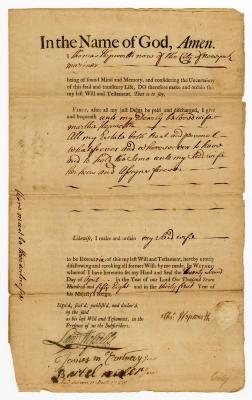 In the Name of God, Amen.
I Thomas Hepworth now of the City of New york
mariner
being of found Mind and Memory, and considering the Uncertainty
of this frail and transitory Life, DO therefore make and ordain this
my last Will and Testament. That is to say,
FIRST, after all just Debts be paid and discharged, I give
and bequeath unto my Dearly beloved wife
martha Hepworth
All my Estate both Real and personal
whatsoever and wheresoever to have
and to hold the Same unto my Said wife
her heirs and Assigns forever
Likewise, I make and ordain my Said wife
to be Executrix of this my last Will and Testament, hereby utterly
disallowing and revoking all former Wills by me made. In WITNESS
whereof I have hereunto set my Hand and Seal the
Day of April in the Year of our Lord One Thousand Seven
Hundred and fifty Eight and in the thirty first Year of
his Majesty's Reign.
Sign'd, seal'd, published, and declar'd,
by the said
as his last Will and Testament, in the
Presence of us the Subscribers.
Thos Hepworth
James